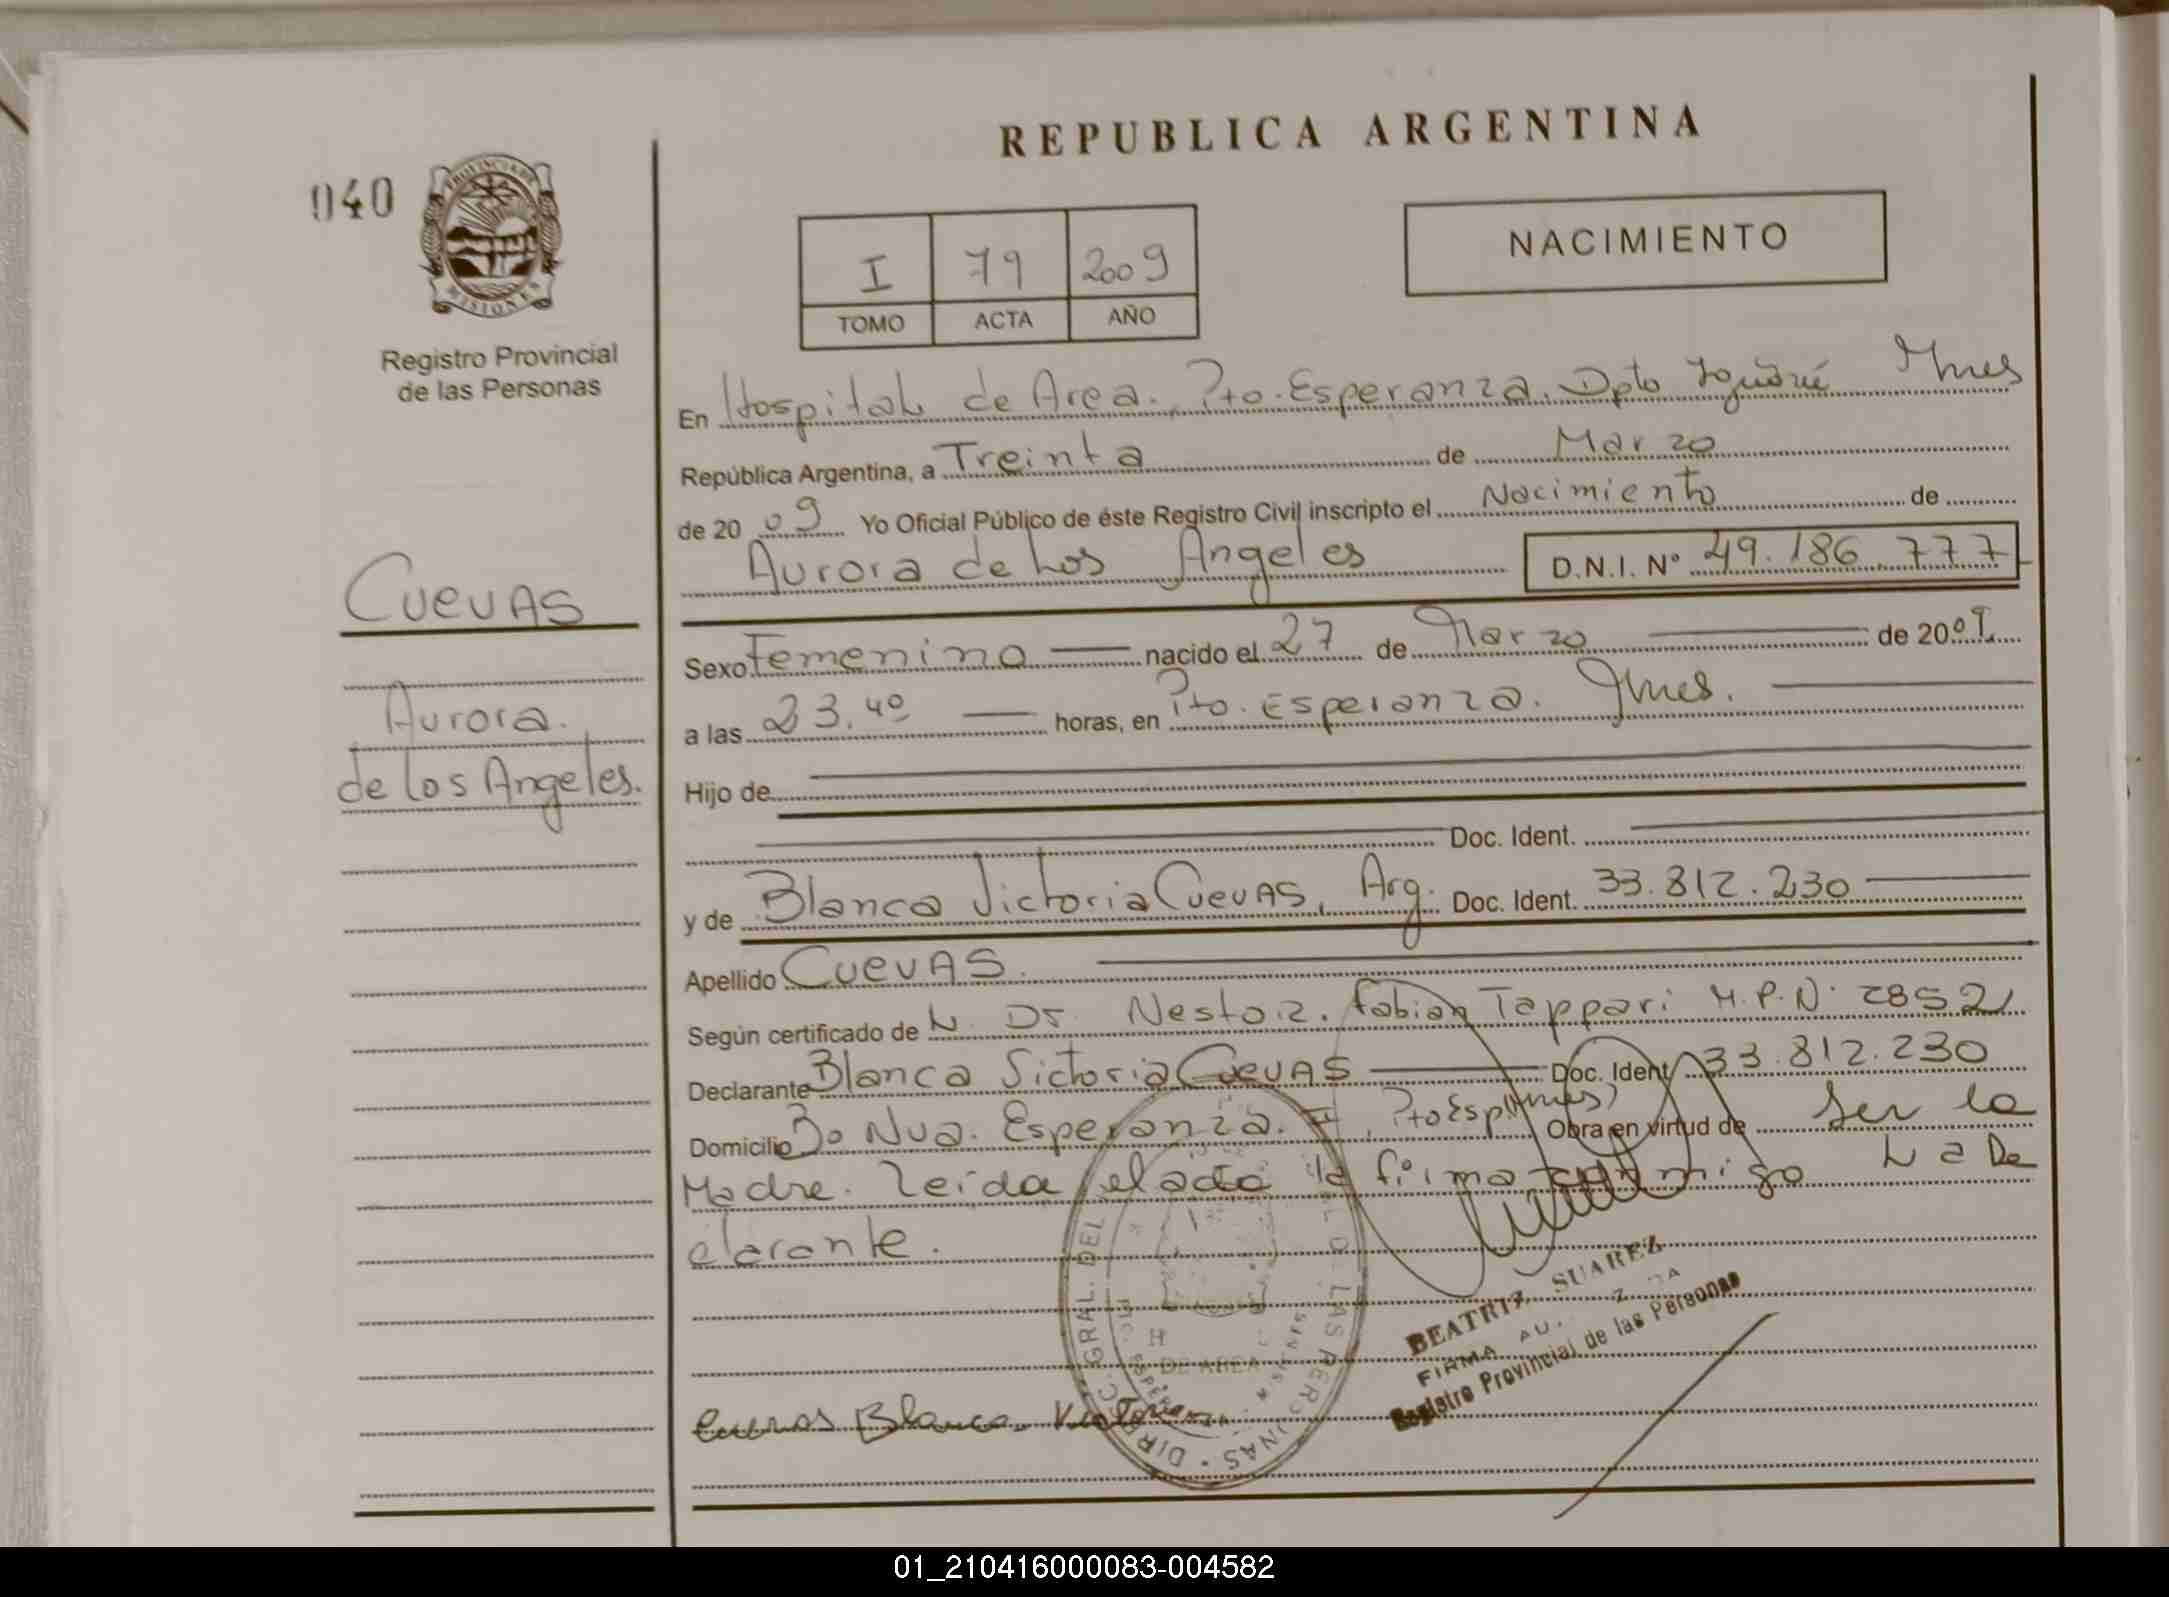 REPUBLICA ARGENTINA
040
PROVINCIA DE
MISIONES
Registro Provincial
de las Personas
I 79 2009
TOMO ACTA AÑO
NACIMIENTO
En Hospital de Area. Pto. Esperanza. Dpto Iguazú Mnes
República Argentina, a Treinta de Marzo
de 2009 Yo Oficial Público de éste Registro Civil inscripto el Nacimiento de
Aurora de Los Angeles D.N.I. Nº 49.186.777
CUEVAS
Aurora.
de los Angeles.
Sexo Femenino nacido el 27 de Marzo de 2009
a las 23.40 horas, en Pto. Esperanza. Mnes.
Hijo de
Doc. Ident.
y de Blanca Victoria Cuevas, Arg. Doc. Ident. 33.812.230
Apellido CUEVAS.
Según certificado de L. Dr. Nestor. Fabian Tappari M.P.N. 28521
Declarante Blanca Victoria Cuevas Doc. Ident. 33.812.230
Domicilio Bo Nva. Esperanza. I, Pto Esp (Mnes) Obra en virtud de Ser la
Madre. Leida el acta la firma conmigo La De
clarante.
BEATRIZ SUAREZ
FIRMA AU.
Registro Provincial de las Personas
Cuevas Blanca Victoria
DIREC. GRAL. DEL LAS PERSONAS
DE AREA
01_210416000083-004582